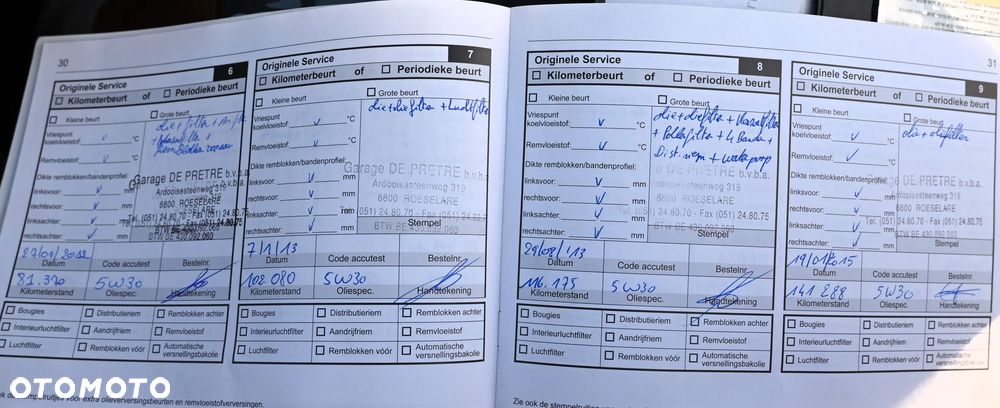 30
Originele Service
6
Kilometerbeurt of Periodieke beurt
Kleine beurt
Grote beurt
Vriespunt
koelvloeistof:
°C
Remvloeistof:
°C
Dikte remblokken/bandenprofiel:
linksvoor: mm
rechtsvoor: mm
linksachter: mm
rechtsachter: mm
Garage DE PRETRE b.v.b.a.
Ardooisesteenweg 319
8800 ROESELARE
Tel. (051) 24.80.70 - Fax (051) 24.80.75
BTW BE 430.092.060
27/01/2012
Datum
Code accutest
Bestelnr.
81.370
5W30
Kilometerstand
Oliespec.
Handtekening
Bougies
Distributieriem
Remblokken achter
Interieurluchtfilter
Aandrijfriem
Remvloeistof
Luchtfilter
Remblokken vóór
Automatische
versnellingsbakolie
Originele Service
7
Kilometerbeurt of Periodieke beurt
Kleine beurt
Grote beurt
olie+oliefilter + Luchtfilter
Vriespunt
koelvloeistof:
°C
Remvloeistof:
°C
Dikte remblokken/bandenprofiel:
linksvoor: mm
rechtsvoor: mm
linksachter: mm
rechtsachter: mm
Garage DE PRETRE b.v.b.a.
Ardooisesteenweg 319
8800 ROESELARE
Tel. (051) 24.80.70 - Fax (051) 24.80.75
BTW BE 430.092.060
Stempel
7/1/13
Datum
Code accutest
Bestelnr.
102 080
5W30
Kilometerstand
Oliespec.
Handtekening
Bougies
Distributieriem
Remblokken achter
Interieurluchtfilter
Aandrijfriem
Remvloeistof
Luchtfilter
Remblokken vóór
Automatische
versnellingsbakolie
31
Originele Service
8
Kilometerbeurt of Periodieke beurt
Kleine beurt
Grote beurt
Vriespunt
koelvloeistof:
°C
Remvloeistof:
°C
Dikte remblokken/bandenprofiel:
linksvoor: mm
rechtsvoor: mm
linksachter: mm
rechtsachter: mm
olie + oliefilter +
+ Pollenfilter + 4 Banden +
Dist. riem + waterpomp
Garage DE PRETRE b.v.b.a.
Ardooisesteenweg 319
8800 ROESELARE
Tel. (051) 24.80.70 - Fax (051) 24.80.75
BTW BE 430.092.060
Stempel
29/08/13
Datum
Code accutest
Bestelnr.
116.175
5W30
Kilometerstand
Oliespec.
Handtekening
Bougies
Distributieriem
Remblokken achter
Interieurluchtfilter
Aandrijfriem
Remvloeistof
Luchtfilter
Remblokken vóór
Automatische
versnellingsbakolie
Originele Service
9
Kilometerbeurt of Periodieke beurt
Kleine beurt
Grote beurt
olie + oliefilter
Vriespunt
koelvloeistof:
°C
Remvloeistof:
°C
Dikte remblokken/bandenprofiel:
linksvoor: mm
rechtsvoor: mm
linksachter: mm
rechtsachter: mm
Garage DE PRETRE b.v.b.a.
Ardooisesteenweg 319
8800 ROESELARE
Tel. (051) 24.80.70 - Fax (051) 24.80.75
BTW BE 430.092.060
Stempel
Datum
Code accutest
Bestelnr.
141 288
5W30
Kilometerstand
Oliespec.
Handtekening
Bougies
Distributieriem
Remblokken achter
Interieurluchtfilter
Aandrijfriem
Remvloeistof
Luchtfilter
Remblokken vóór
Automatische
versnellingsbakolie
ok de stempelruitjes voor extra olieverversingsbeurten en remvloeistofverversingen.
Zie ook de stempelruitjes voor
OTOMOTO